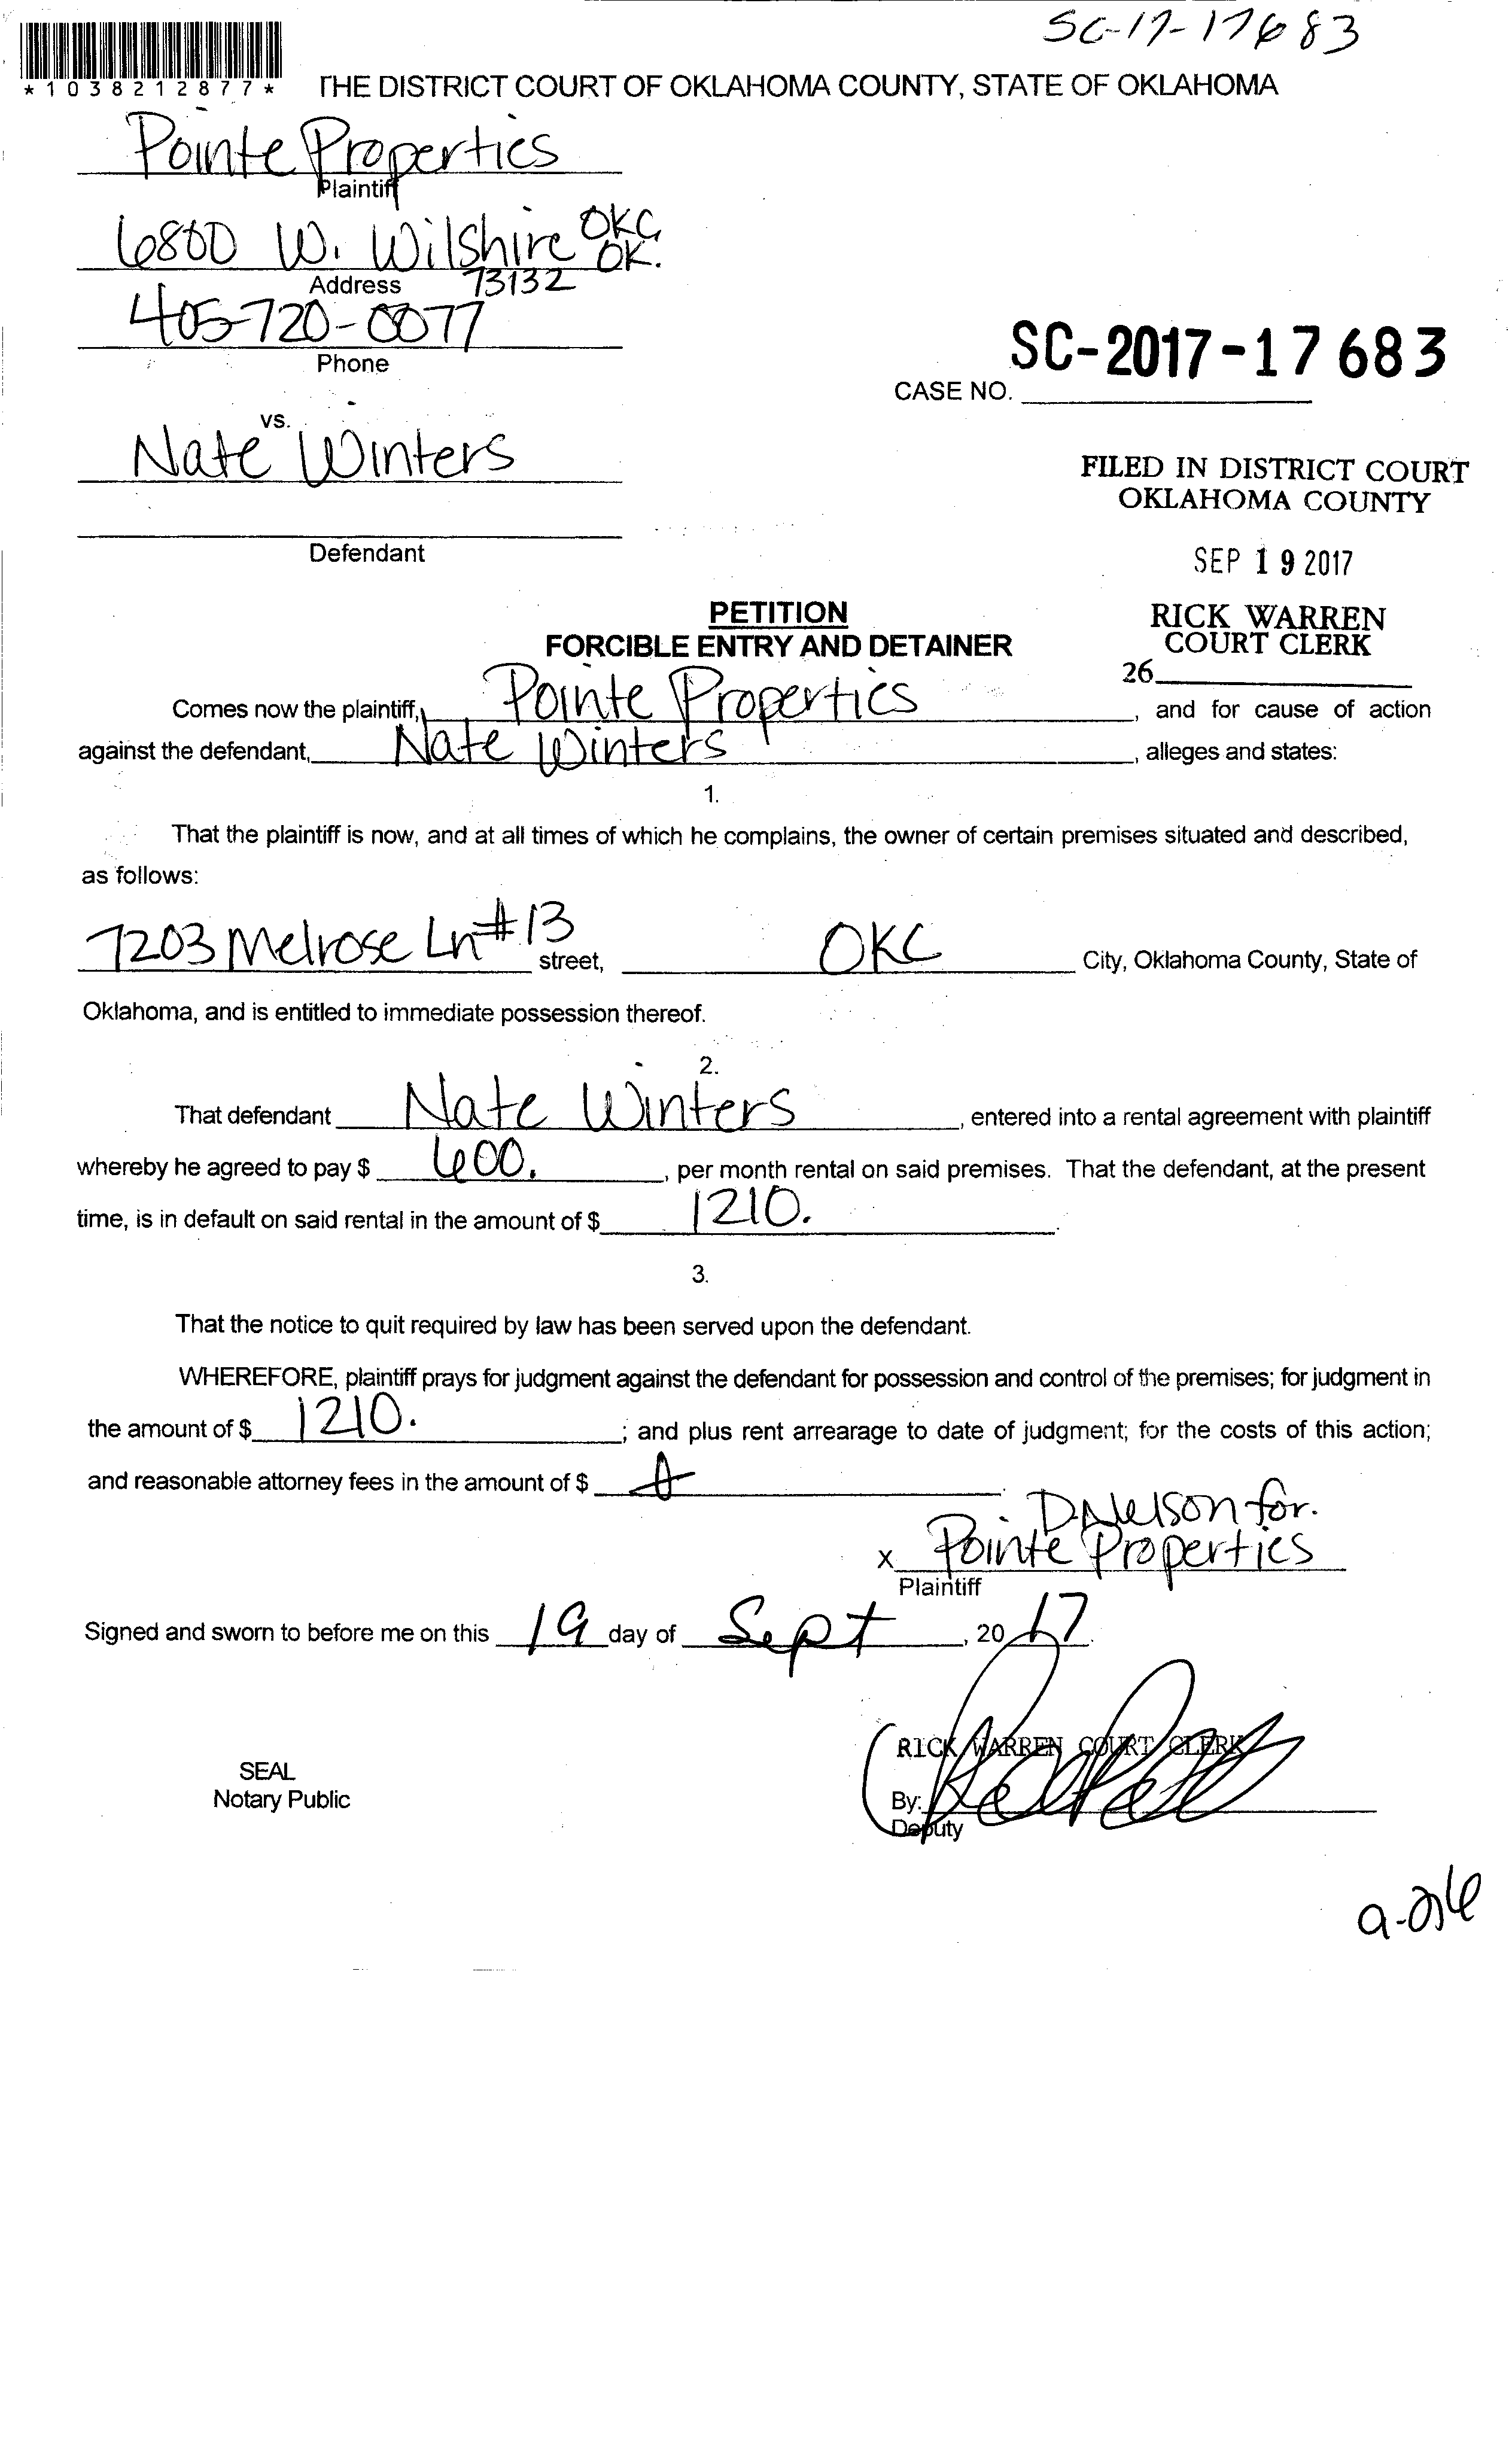 SC-17-17683
*1038212877*
THE DISTRICT COURT OF OKLAHOMA COUNTY, STATE OF OKLAHOMA
Pointe Properties
Plaintiff
6800 W. Wilshire OKC, OK.
Address 73132
405-720-0077
Phone
SC-2017-17683
CASE NO.
vs.
Nate Winters
Defendant
FILED IN DISTRICT COURT
OKLAHOMA COUNTY
SEP 19 2017
RICK WARREN
COURT CLERK
26
PETITION
FORCIBLE ENTRY AND DETAINER
Comes now the plaintiff, Pointe Properties, and for cause of action
against the defendant, Nate Winters, alleges and states:
1.
That the plaintiff is now, and at all times of which he complains, the owner of certain premises situated and described,
as follows:
7203 Melrose Ln #13 street, OKC City, Oklahoma County, State of
Oklahoma, and is entitled to immediate possession thereof.
2.
That defendant Nate Winters, entered into a rental agreement with plaintiff
whereby he agreed to pay $ 600., per month rental on said premises. That the defendant, at the present
time, is in default on said rental in the amount of $ 1210.
3.
That the notice to quit required by law has been served upon the defendant.
WHEREFORE, plaintiff prays for judgment against the defendant for possession and control of the premises; for judgment in
the amount of $ 1210. ; and plus rent arrearage to date of judgment; for the costs of this action;
and reasonable attorney fees in the amount of $
D. Nelson for.
x Pointe Properties
Plaintiff
Signed and sworn to before me on this 19 day of Sept, 2017.
RICK WARREN COURT CLERK
SEAL
Notary Public
By:
Deputy